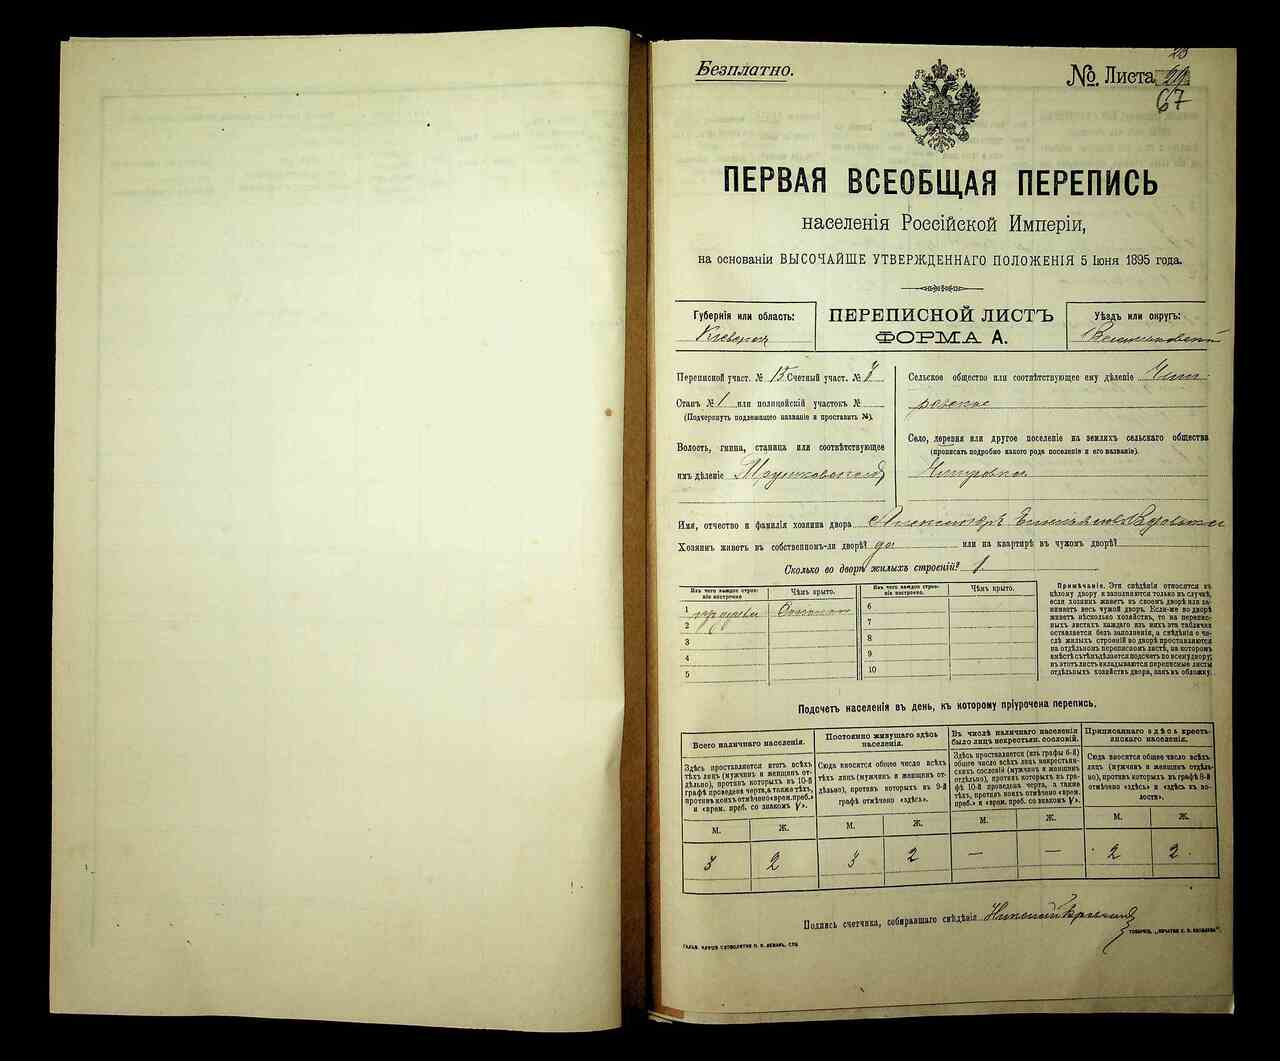 Безплатно.
№. Листа
67
ПЕРВАЯ ВСЕОБЩАЯ ПЕРЕПИСЬ
населенія Россійской Имперіи,
на основаніи ВЫСОЧАЙШЕ УТВЕРЖДЕННАГО ПОЛОЖЕНІЯ 5 Іюня 1895 года.
Губернія или область:
Кіевская
ПЕРЕПИСНОЙ ЛИСТЪ
ФОРМА А.
Уѣздъ или округъ:
Переписной участ. № 15 Счетный участ. №
Станъ № 1 или полицейскій участокъ №
(Подчеркнуть подлежащее названіе и проставить №).
Волость, гмина, станица или соотвѣтствующее
имъ дѣленіе
Сельское общество или соотвѣтствующее ему дѣленіе
Село, деревня или другое поселеніе на земляхъ сельскаго общества
(прописать подробно какого рода поселеніе и его названіе).
Имя, отчество и фамилія хозяина двора Александръ
Хозяинъ живетъ въ собственномъ-ли дворѣ? да или на квартирѣ въ чужомъ дворѣ?
Сколько во дворѣ жилыхъ строеній? 1.
Изъ чего каждое строе-
ніе построено
Чѣмъ крыто.
1
2
3
4
5
Изъ чего каждое строе-
ніе построено.
Чѣмъ крыто.
6
7
8
9
10
Примѣчаніе. Эти свѣдѣнія относятся къ
цѣлому двору и заполняются только въ случаѣ,
если хозяинъ живетъ въ своемъ дворѣ или за-
нимаетъ весь чужой дворъ. Если-же во дворѣ
живетъ нѣсколько хозяйствъ, то на перепис-
ныхъ листахъ каждаго изъ нихъ эта табличка
оставается безъ заполненія, а свѣдѣнія о чи-
слѣ жилыхъ строеній во дворѣ проставляются
на отдѣльномъ переписномъ листѣ, на которомъ
вмѣстѣ съ тѣмъ дѣлается подсчетъ по всему двору;
въ этотъ листъ вкладываются переписные листы
отдѣльныхъ хозяйствъ двора, какъ въ обложку.
Подсчетъ населенія въ день, къ которому пріурочена перепись.
Всего наличнаго населенія.
Здѣсь проставляется итогъ всѣхъ
тѣхъ лицъ (мужчинъ и женщинъ от-
дѣльно), противъ которыхъ въ 10-й
графѣ проведена черта, а также тѣхъ,
противъ коихъ отмѣчено «врем. преб.»
и «врем. преб. со знакомъ V».
Постоянно живущаго здѣсь
населенія.
Сюда вносится общее число всѣхъ
тѣхъ лицъ (мужчинъ и женщинъ от-
дѣльно), противъ которыхъ въ 9-й
графѣ отмѣчено «здѣсь».
Въ числѣ наличнаго населенія
было лицъ некрестьян. сословій.
Здѣсь проставляется (изъ графы 6-й)
общее число всѣхъ лицъ некрестьян-
скихъ сословій (мужчинъ и женщинъ
отдѣльно), противъ которыхъ въ гра-
фѣ 10-й проведена черта, а также
тѣхъ, противъ коихъ отмѣчено «врем.
преб.» и «врем. преб. со знакомъ V».
Приписаннаго здѣсь кресть-
янскаго населенія.
Сюда вносится общее число всѣхъ
лицъ (мужчинъ и женщинъ отдѣль-
но), противъ которыхъ въ графѣ 8-й
отмѣчено «здѣсь» и «здѣсь въ во-
лости».
М. Ж. М. Ж. М. Ж. М. Ж.
3 2 3 2 — — 2 2
Подпись счетчика, собиравшаго свѣдѣнія Николай